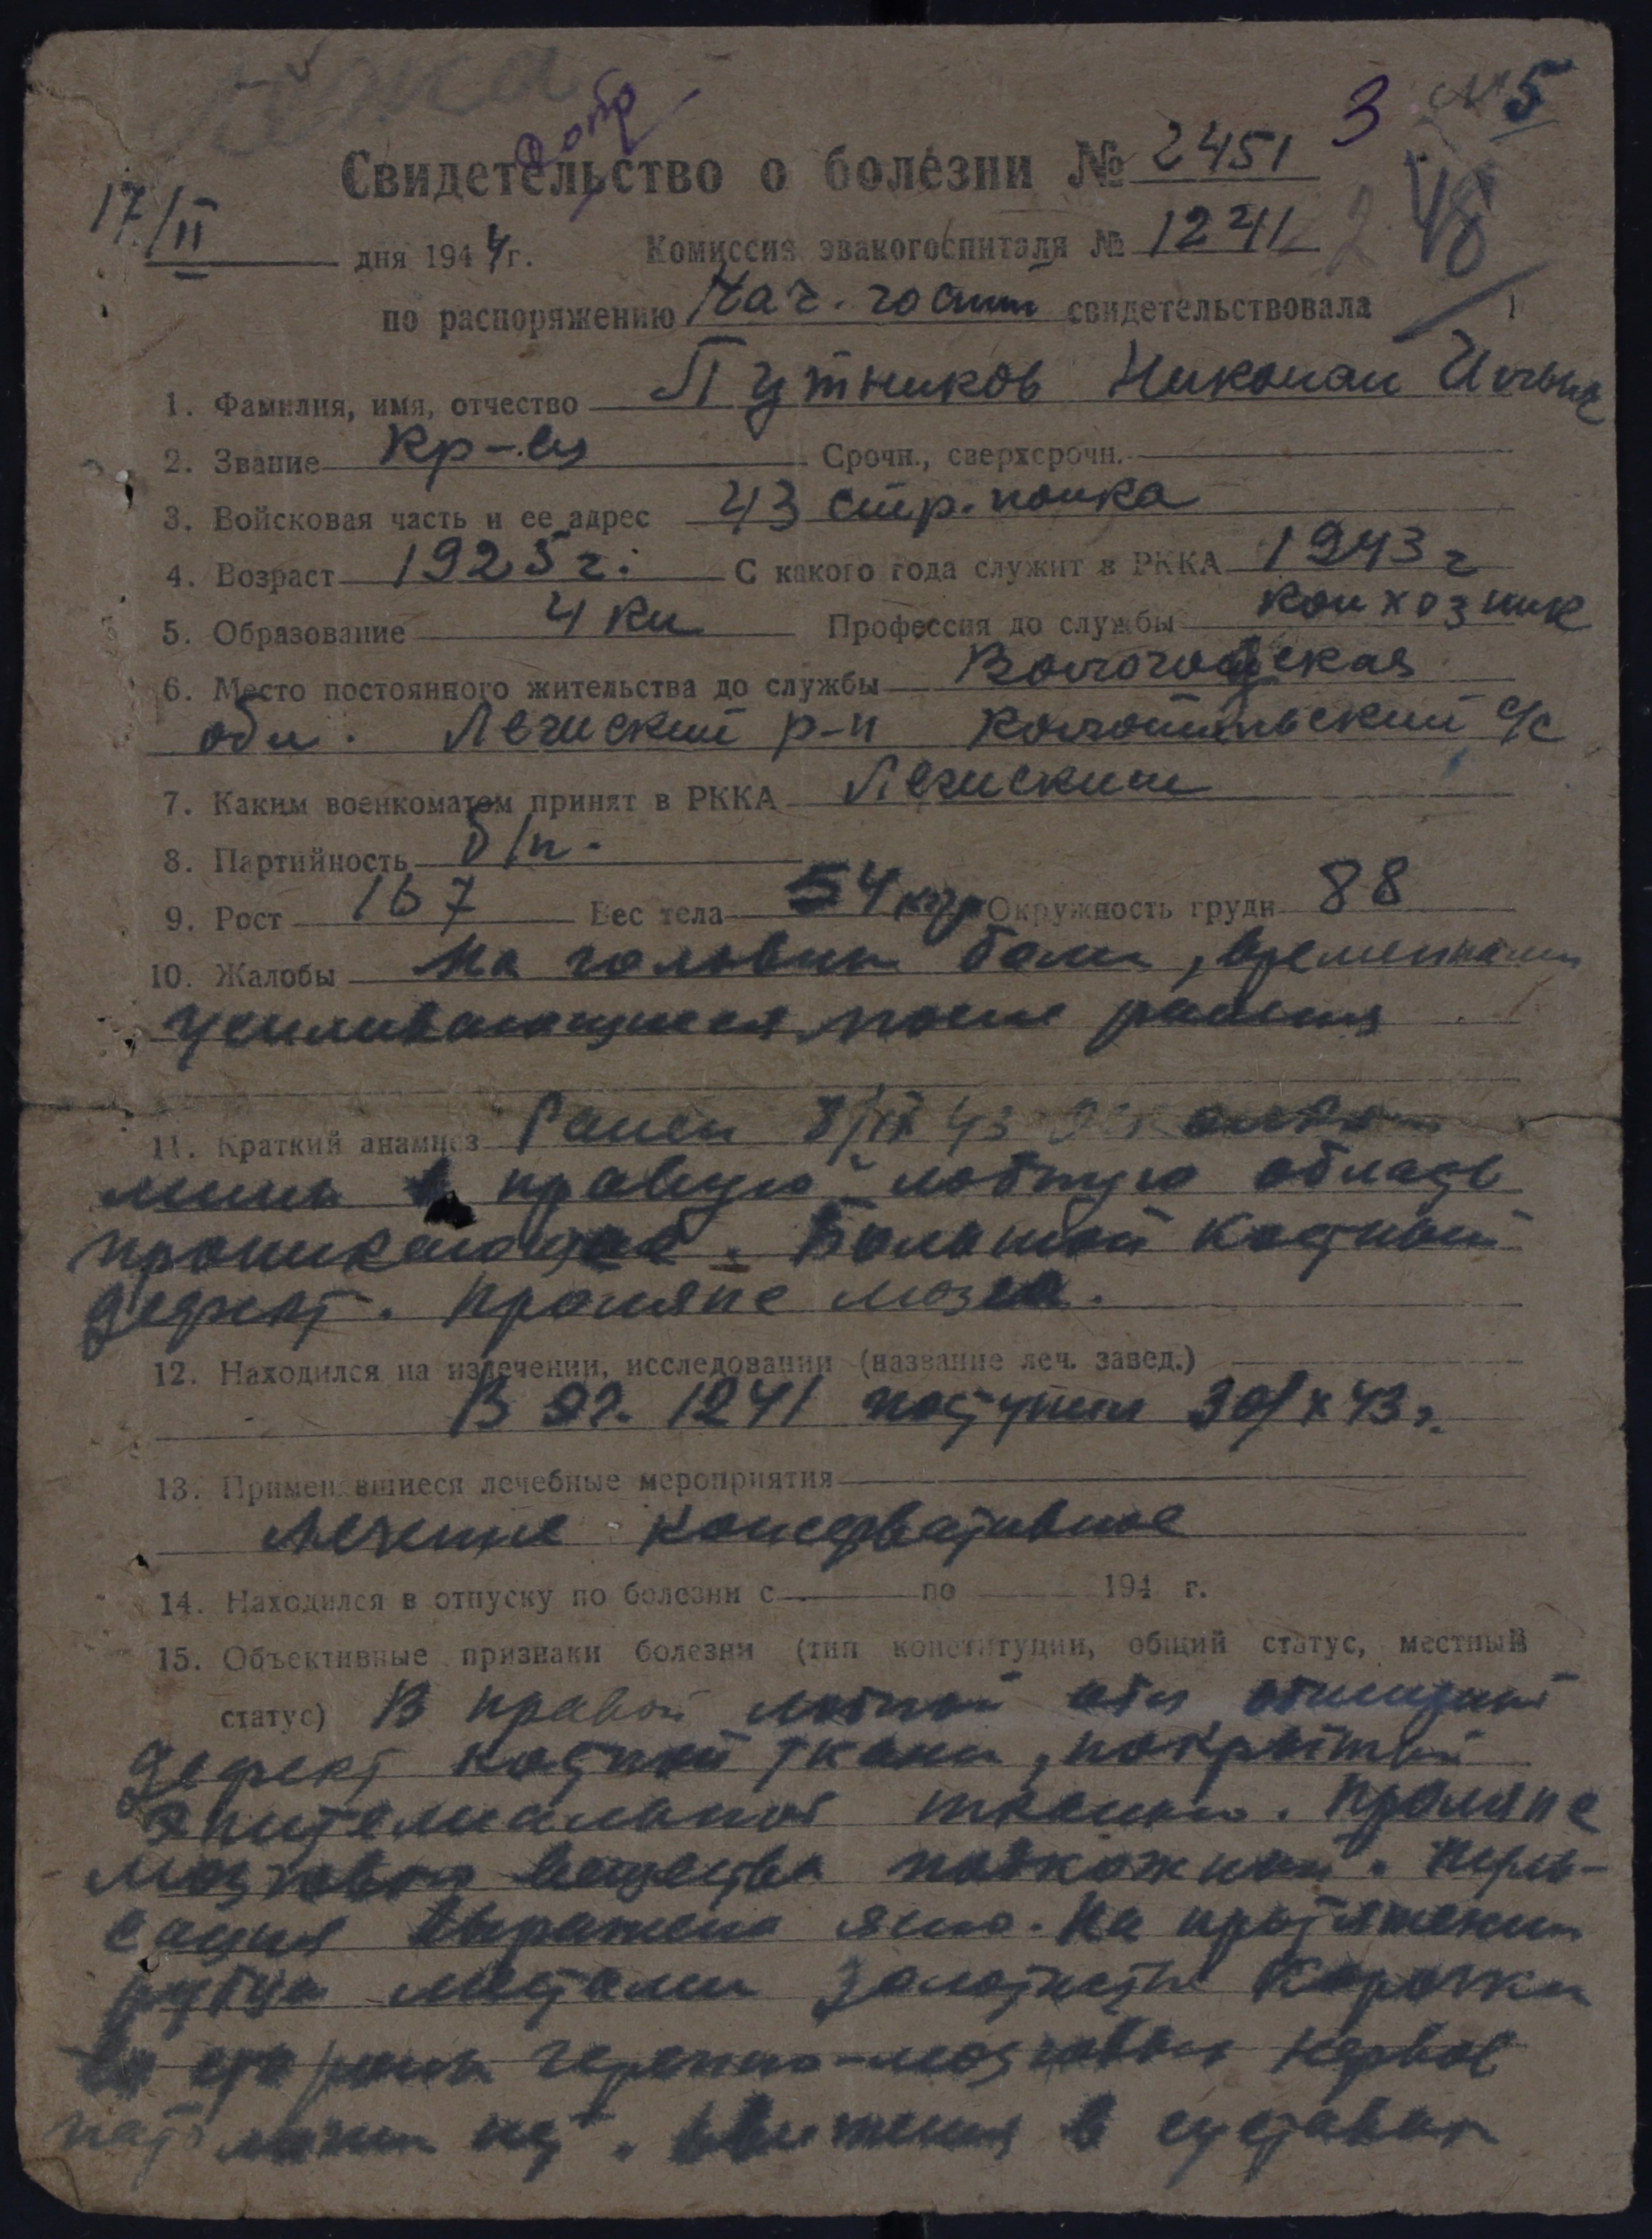 3 №5
Свидетельство о болезни № 2451
48
17/II дня 1944 г. Комиссия эвакогоспиталя № 1241
по распоряжению Нач. госпит свидетельствовала
1. Фамилия, имя, отчество Путников Николай Ильич
2. Звание кр-ец Срочн., сверхсрочн.
3. Войсковая часть и ее адрес 43 стр. полка
4. Возраст 1925 г. С какого года служит в РККА 1943 г
5. Образование 4 кл Профессия до службы колхозник
6. Место постоянного жительства до службы Вологодская
обл. р-н с/с
7. Каким военкоматом принят в РККА
8. Партийность б/п.
9. Рост 167 Вес тела 54 кгр Окружность груди 88
10. Жалобы На головные боли, временами
усиливающиеся, после ранения
11. Краткий анамнез Ранен 43 осколком
мины в правую лобную область
проникающее. Большой костный
дефект. Пролапс мозга.
12. Находился на излечении, исследовании (название леч. завед.)
В эг. 1241 поступил 30/X 43 г.
13. Применявшиеся лечебные мероприятия
Лечение консервативное
14. Находился в отпуску по болезни с по 194 г.
15. Объективные признаки болезни (тип конституции, общий статус, местный
статус) В правой лобной обл обширный
дефект костной ткани, покрытый
эпителиальной тканью. Пролапс
мозгового вещества подкожный. Пуль-
сация выражена ясно. На протяжении
рубца местами золотистые корочки
Со стороны черепно-мозговых нервов
патологии нет. Движения в суставах